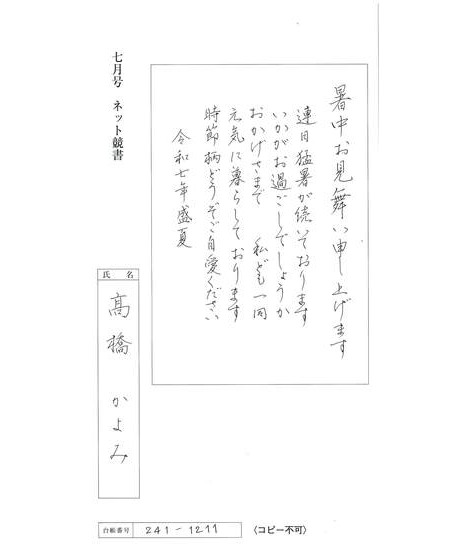 七月号　ネット競書
暑中お見舞い申し上げます
連日猛暑が続いております
いかがお過ごしでしょうか
おかげさまで　私ども一同
元気に暮らしております
時節柄どうぞご自愛ください
令和七年盛夏
氏　名
高橋　かよみ
台帳番号　241-1211
〈コピー不可〉